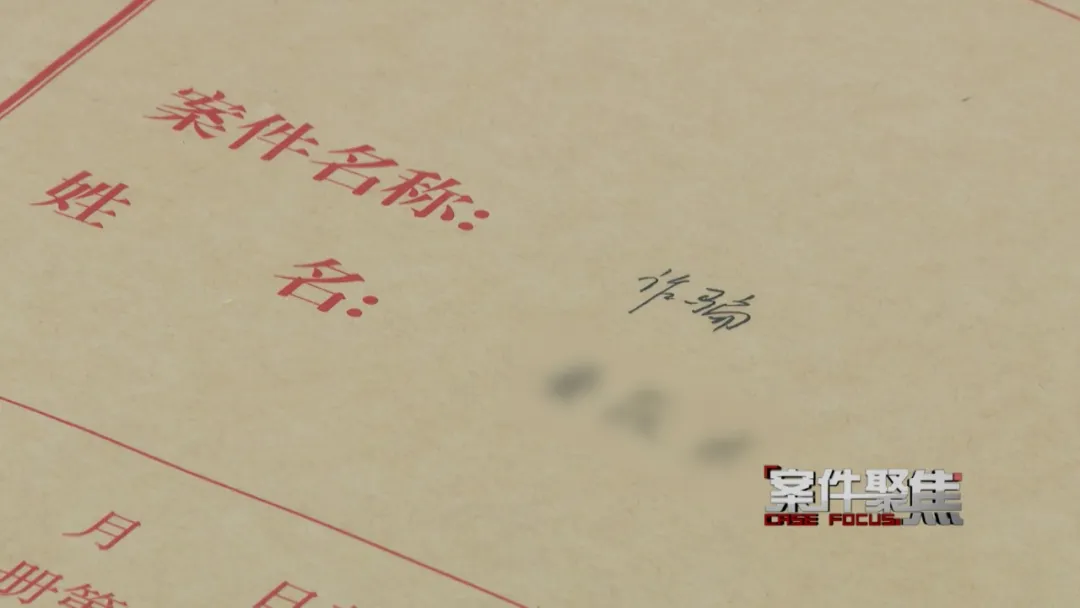 案件名称:
诈骗
姓 名:
月 日
册第
案件聚焦
CASE FOCUS